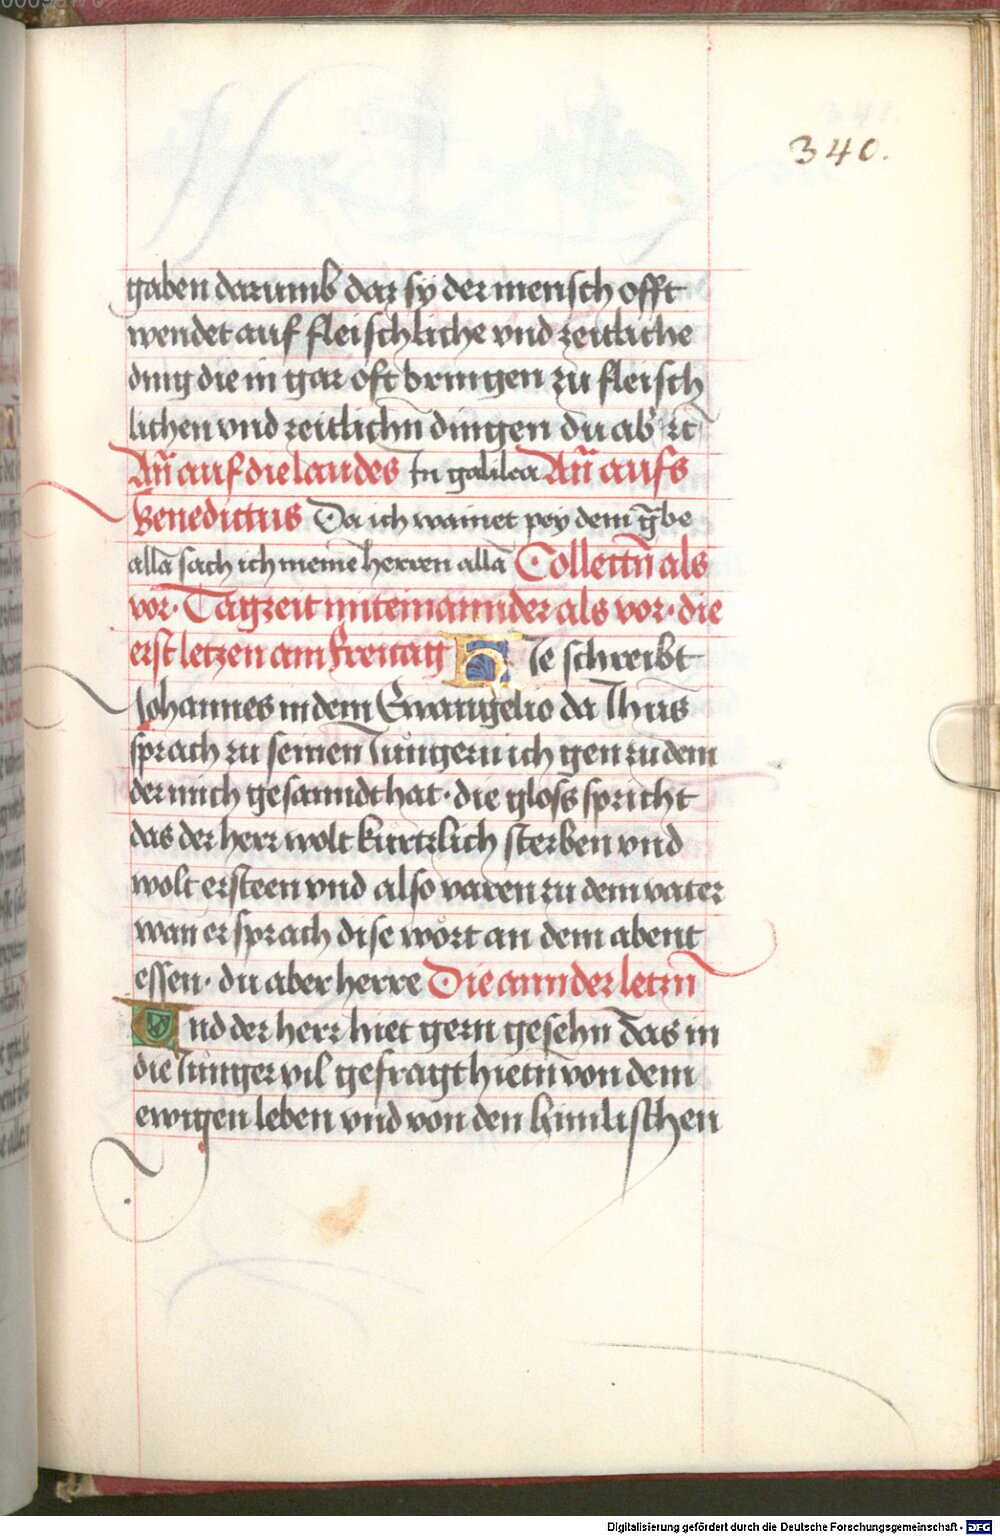 340.
gaben darumb daz sÿ der mensch offt
wendet auf fleischliche vnd zeitliche
ding die in gar oft bringen zu fleisch
lichen vnd zeitlichn̄ dingen du ab᷑ ꝛc
An̄ auf die laudes In galilea An̄ aufs
Benedictus Da ich wainet pey dem g̅be
all̄a sach ich meinē herren all̄a Collectn̄ als
vor · Tagzeit miteinannder als vor · die
erst letzen am Freitag HIe schreibt
Johannes in dem Ewangelio da Ihūs
sprach zu seinen Iungern ich gen zu dem
der mich gesanndt hat · die gloss spricht
das der herr wolt kurtzlich sterben vnd
wolt ersteen vnd also varen zu dem vater
wan er sprach dise wort an dem abent
essen · du aber herre Die annder letzn̄
Vnd der herr hiet gern gesehn̄ das in
die Iunger vil gefragt hietn̄ von dem
ewigen leben vnd von den himlischen
Digitalisierung gefördert durch die Deutsche Forschungsgemeinschaft - DFG